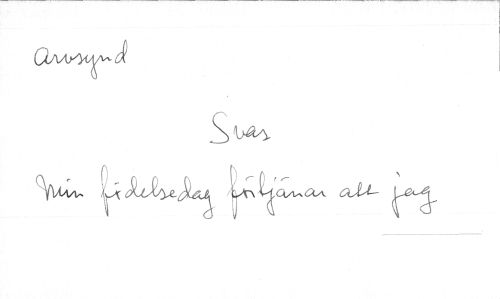 Arvsynd
Svar
Min födelsedag förtjänar att jag